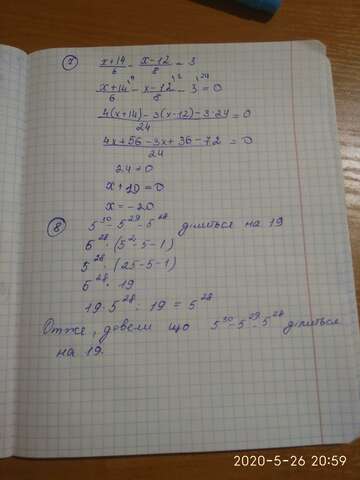 7 x+14/6 - x-12/8 = 3
x+14/6 - x-12/8 - 3 = 0
4(x+14) - 3(x-12) - 3·24/24 = 0
4x+56-3x+36-72/24 = 0
24≠0
x+20=0
x=-20
8 5^30 - 5^29 - 5^28 ділиться на 19
5^28 · (5^2 - 5 - 1)
5^28 · (25-5-1)
5^28 · 19
19·5^28 : 19 = 5^28
Отже, довели що 5^30 - 5^29 - 5^28 ділиться
на 19.
2020-5-26 20:59